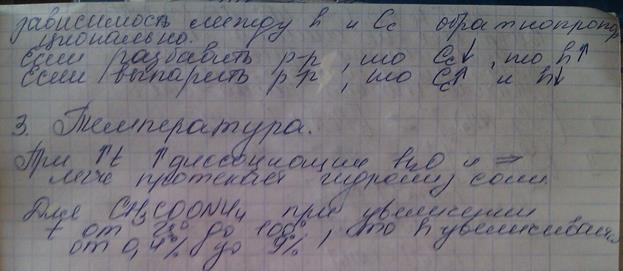 зависимость между h и Cc обратнопропор
ционально.
Если разбавить р-р, то Cc↓, то h↑
Если выпарить р-р, то Cc↑ и h↓
3. Температура.
При ↑t ↑диссоциация H2O и ⇒
легче протекает гидролиз соли
Для CH3COONH4 при увеличении
от 20° до 100°, то h увеличивается
от 0,4% до 4%